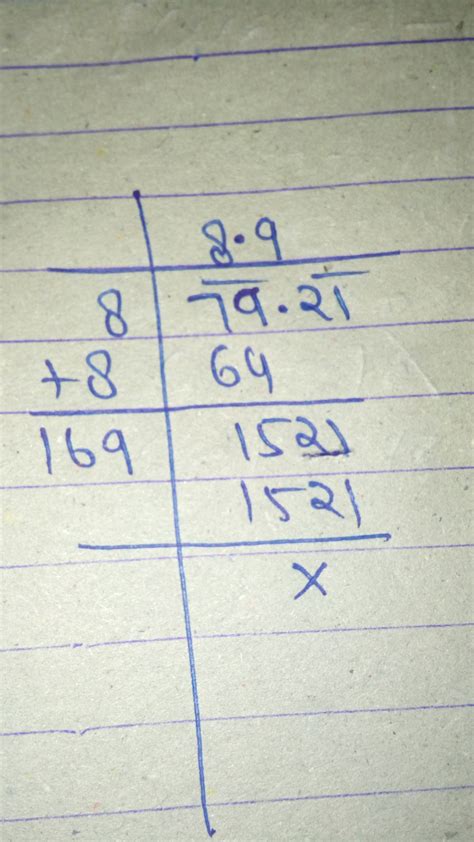 8.9
8 79.21
+8 64
169 1521
1521
x